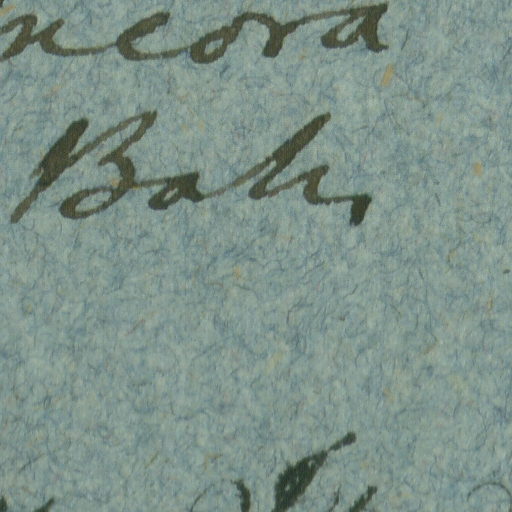 ncora
Bah,